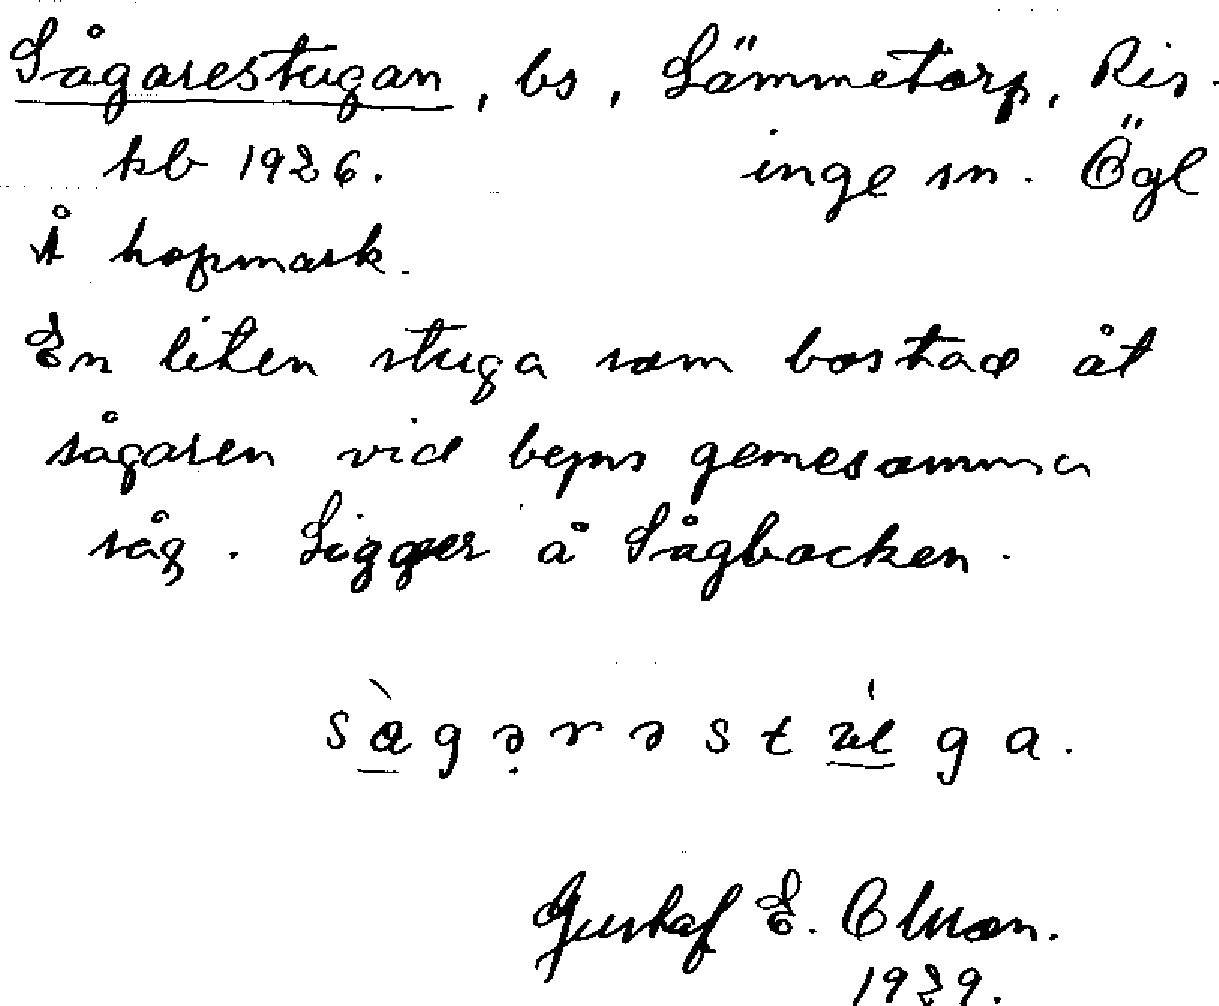 Sågarestugan, bs, Lämmetorp, Ris-
kb 1926. inge sn. Ögl
Å hopmark.
En liten stuga som bostad åt
sågaren vid byns gemesamma
såg. Ligger å Sågbacken.
Gustaf E. Olsson.
1929.